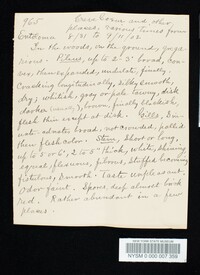 965
Crow Coma and other
places, various times from
Entoloma 8/31 to 9/11/02
In the woods, on the ground, gregarious.
Pileus, up to 2-3" broad, convex,
then expanded, undulate, finally
cracking longitudinally, silky smooth,
dry; whitish, gray or pale tawny, disk
darker brown, finally blackish,
flesh thin except at disk. Gills,
adnate, broad, not crowded, pallid
then flesh color. Stem, short or long,
up to 5 or 6", 2 to 5" thick, white, shining
equal, flexuous, fibrous, stuffed becoming
fistulous, smooth. Taste unpleasant,
odor faint. Spores, deep almost brick
red. Rather abundant in a few
places.
NEW YORK STATE MUSEUM
NYSM 0 000 007 359